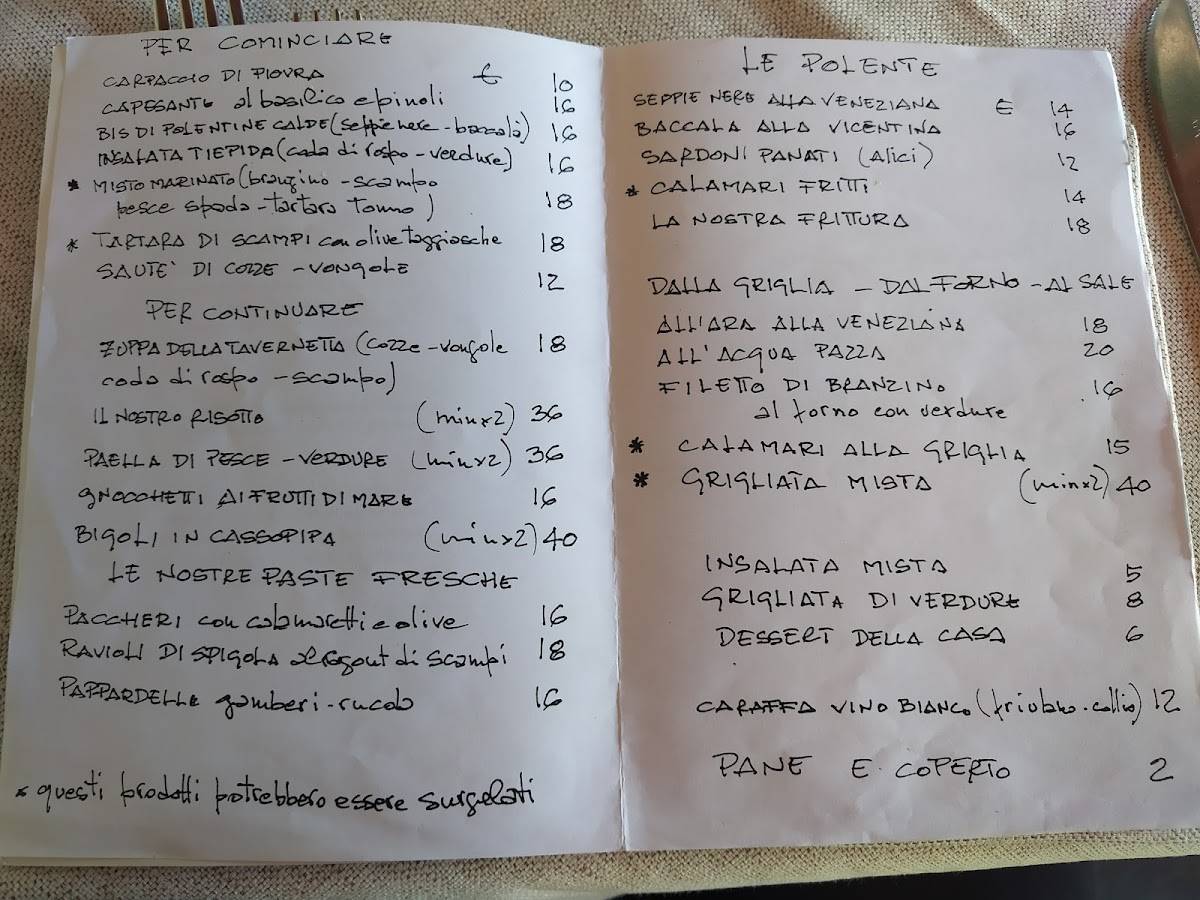 PER COMINCIARE
CARPACCIO DI PIOVRA € 10
CAPESANTE al basilico e pinoli 16
BIS DI POLENTINE CALDE (seppie nere - baccalà) 16
INSALATA TIEPIDA (coda di rospo - verdure) 16
* MISTO MARINATO (branzino - scampo
pesce spada - tartara tonno) 18
* TARTARA DI SCAMPI con olive taggiasche 18
SAUTE' DI COZZE - VONGOLE 12
PER CONTINUARE
ZUPPA DELLA TAVERNETTA (cozze - vongole 18
coda di rospo - scampo)
IL NOSTRO RISOTTO (min x 2) 36
PAELLA DI PESCE - VERDURE (min x 2) 36
GNOCCHETTI AI FRUTTI DI MARE 16
BIGOLI IN CASSOPIPA (min x 2) 40
LE NOSTRE PASTE FRESCHE
PACCHERI con calamaretti e olive 16
RAVIOLI DI SPIGOLA al ragout di scampi 18
PAPPARDELLE gamberi - rucola 16
* questi prodotti potrebbero essere surgelati
LE POLENTE
SEPPIE NERE ALLA VENEZIANA € 14
BACCALA ALLA VICENTINA 16
SARDONI PANATI (alici) 12
* CALAMARI FRITTI 14
LA NOSTRA FRITTURA 18
DALLA GRIGLIA - DAL FORNO - AL SALE
ALL'ARA ALLA VENEZIANA 18
ALL'ACQUA PAZZA 20
FILETTO DI BRANZINO 16
al forno con verdure
* CALAMARI ALLA GRIGLIA 15
* GRIGLIATA MISTA (min x 2) 40
INSALATA MISTA 5
GRIGLIATA DI VERDURE 8
DESSERT DELLA CASA 6
CARAFFA VINO BIANCO (friulano - collio) 12
PANE E COPERTO 2